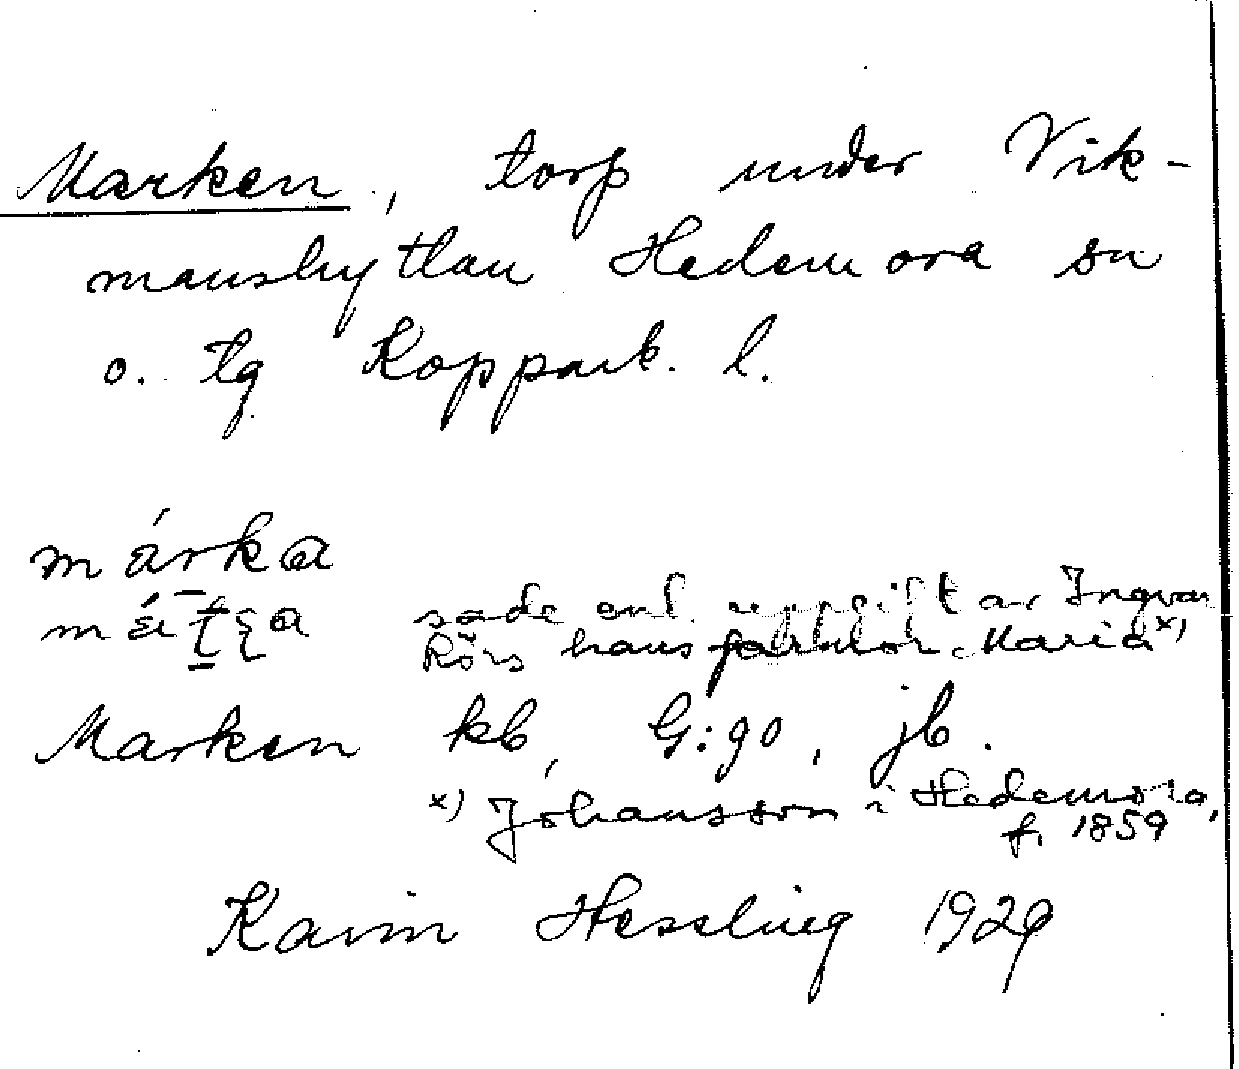 Marken, torp under Vik-
manshyttan Hedemora sn
o. tg Kopparb. l.
márka
sade enl. uppgift av Ingvar
Rörs hans farmor Maria x)
Marken kb, G:go, jb.
x) Johansson i Hedemora,
f. 1859
Karin Hessling 1929